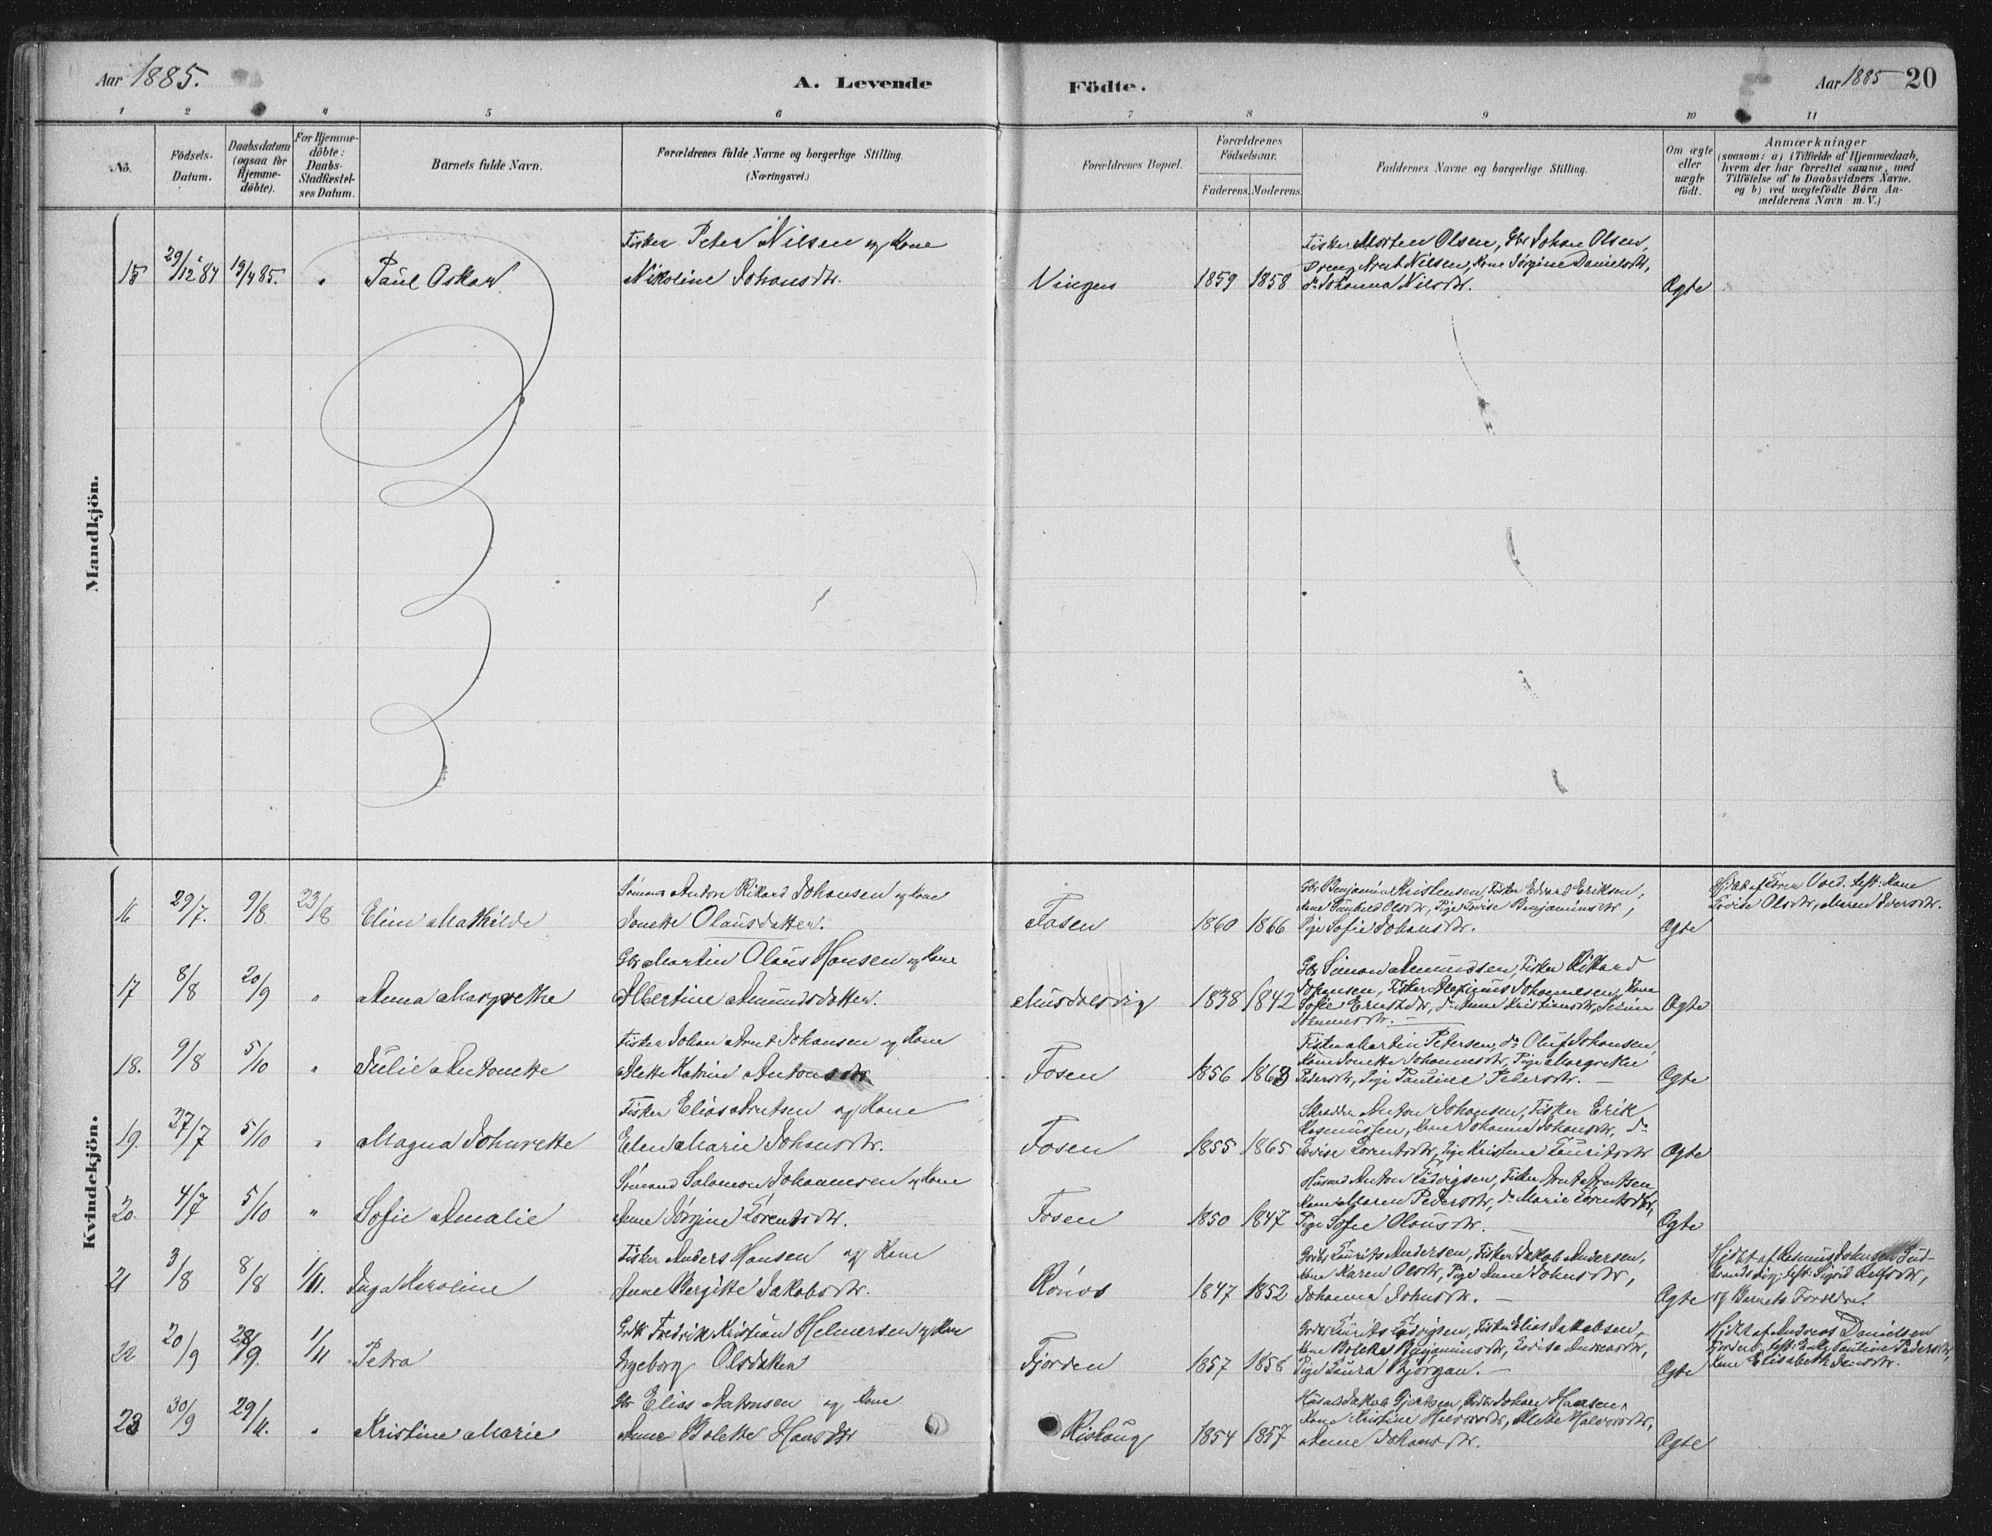 Aar 1885.
A. Levende
Födte.
Aar 1885 20
1 2 3 4 5 6 7 8 9 10 11
No.
Födsels-
Datum.
Daabsdatum
(ogsaa for
Hjemme-
döbte).
For Hjemme-
döbte:
Daabs-
Stadfæstel-
ses Datum.
Barnets fulde Navn.
Forældrenes fulde Navne og borgerlige Stilling.
(Næringsvei.)
Forældrenes Bopæl.
Forældrenes
Födselsaar.
Faderens. Moderens.
Faddernes Navne og borgerlige Stilling.
Om ægte
eller
uægte
födt.
Anmærkninger
(saasom: a) i Tilfælde af Hjemmedaab,
hvem der har forrettet samme, med
Tilföielse af to Daabsvidners Navne.
og b) ved uægtefödte Börn An-
melderens Navn m. V.)
Mandkjön.
15 29/12 84 19/4 85. " Paul Oskar
Fisker Peter Nilsen og Kone
Nikoline Johansdtr.
Vingen 1859 1858
Fisker Morten Olsen, Gbr Johan Olsen,
Dreng Arnt Nilsen, Kone Jørgine Danielsdtr,
do Johanna Nilsdtr.
Ægte
Kvindekjön.
16 29/7 9/8 23/8 Eline Mathilde
Sömand Anton Rikard Johansen og Kone
Jonette Olausdatter.
Fosen 1860 1866
Gbr Benjamin Kristensen, Fisker Edvard Eriksen,
Kone Olsdtr, Pige Lovise Benjaminsdtr,
Pige Sofie Johansdtr.
Ægte
Hjdbt af Søren Kone
Lovise Olsdtr, Maren Iversdtr.
17 8/8 20/9 " Anna Margrethe
Gbr Martin Olaus Hansen og Kone
Albertine Amundsdatter.
1838 1842
Gbr Simon Amundsen, Fisker Rikard
Johansen, Fisker Johannesen, Kone
Sofie Ernstsdtr, do Anne Kristiansdtr,
Ægte
18. 9/8 5/10 " Julie Antonette
Fisker Johan Arnt Johansen og Kone
Alette Katrine Antonsdtr
Fosen 1856 1863
Fisker Martin Petersen, do Oluf Johansen,
Kone Jonette Johannesdtr, Pige Margrethe
Pedersdtr, Pige Pauline Pedersdtr. —
Ægte
19. 27/7 5/10 " Magna Johnrette
Fisker Elias Arntsen og Kone
Elen Marie Johansdtr.
Fosen 1855 1865
Skrædder Anton Johansen, Fisker Erik
Rasmussen, Kone Johanna Johansdtr, do
Lovise Lorentsdtr, Pige Kristine Lauritsdtr
Ægte
20. 4/7 5/10 " Sofie Amalie
Sömand Salomon Johannesen og Kone
Anne Jørgine Lorentsdtr.
Fosen 1850 1847
Husmand Anton Ludvigsen, Fisker Arnt Arentsen
Kone Maren Pedersdtr, do Marie Lorentsdtr,
Pige Sofie Olausdtr. —
Ægte
21 3/8 8/8 1/11. Inga Karoline
Fisker Anders Hansen og Kone
Anne Bergitte Jakobsdtr.
1847 1852
Laurits Andersen, Fisker Jakob Andersen,
Kone Karen Olsdtr, Pige Anne Johnsdtr,
Johanna Johnsdtr. —
Ægte
Hjdbt af Rasmus Johnsen
Sigrid
og Barnets Forældre.
22 20/9 28/9. 1/11 Petra
Gbr Fredrik Kristian Helmersen og Kone
Ingeborg Olsdatter
Fjorden 1857 1858
Laurits Ludvigsen, Fisker Elias Jakobsen,
Kone Bolette Benjaminsdtr, Lovise Andreasdtr,
Pige Laura Bjørgan. —
Ægte
Hjdbt af Andreas Danielsen
Fjorden, Pauline Pedersdtr,
Kone Elisabeth Jensdtr.
23 30/9 29/11. " Kristine Marie
Gbr Elias Antonsen og Kone
Anne Bolette Hansdtr
Rishaug 1854 1857
Husmand Jakob Gjertsen, Johan Hansen,
Kone Kristine Halvorsdtr, Alette Halvorsdtr,
Anne Johansdtr.
Ægte